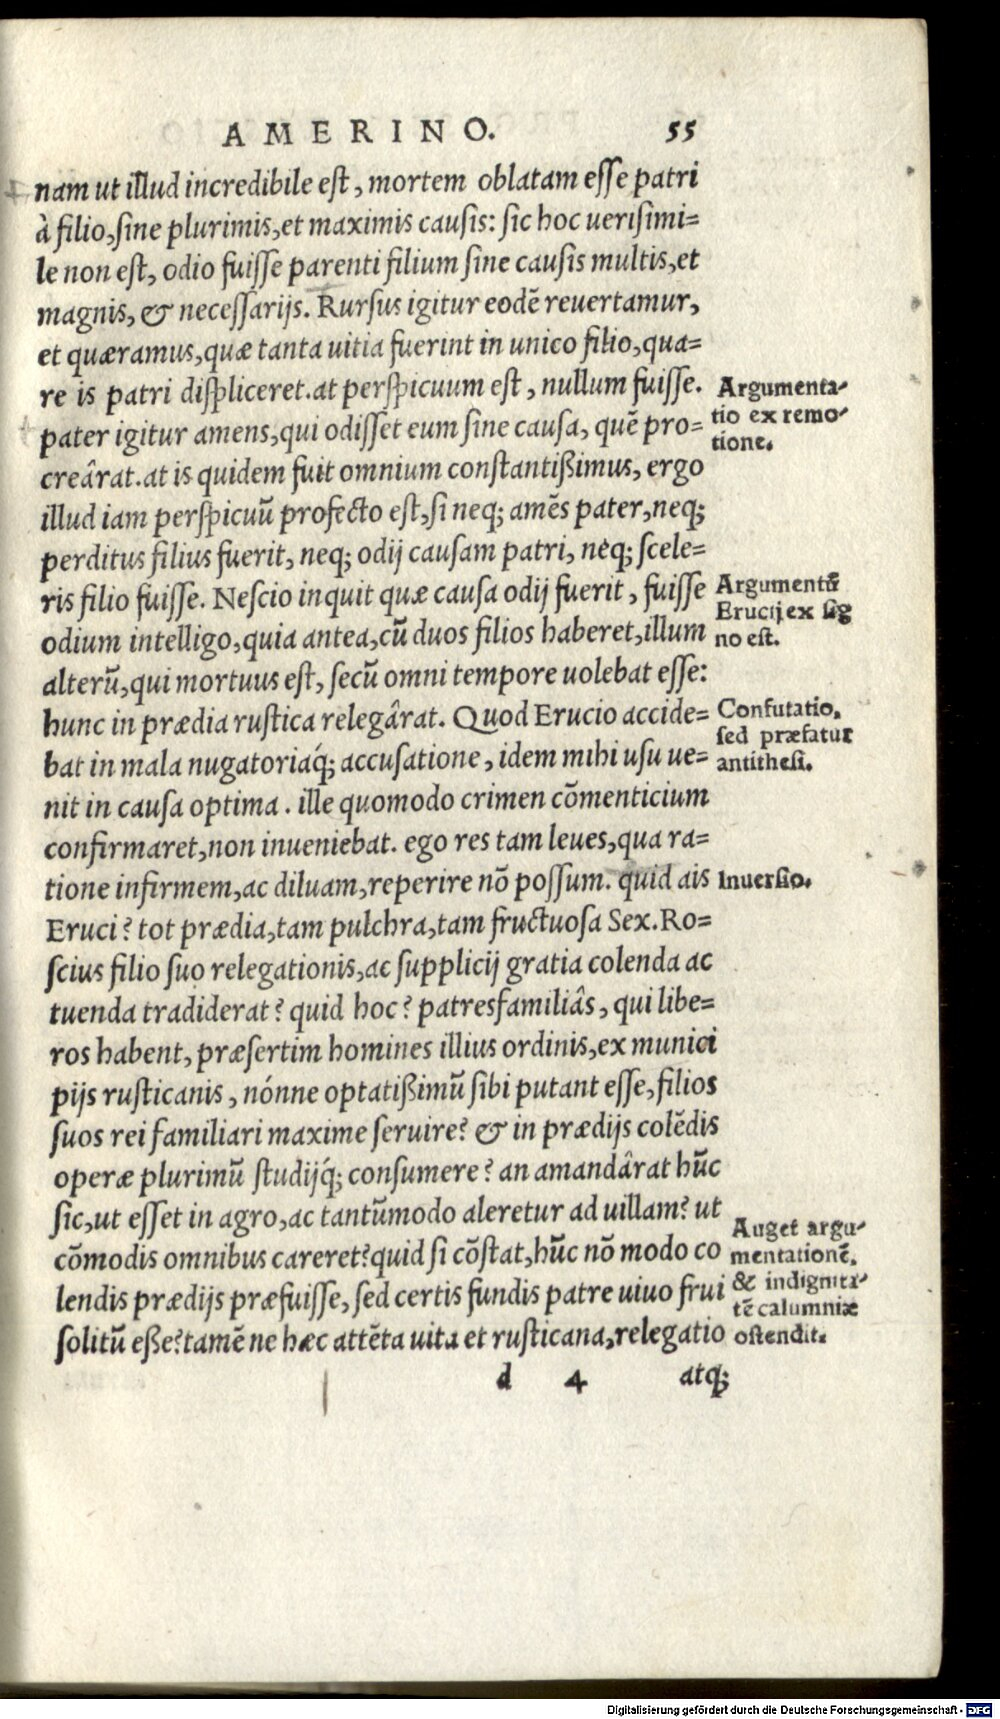 AMERINO. 55
nam ut illud incredibile est, mortem oblatam esse patri
à filio, sine plurimis, et maximis causis: sic hoc uerisimi=
le non est, odio fuisse parenti filium sine causis multis, et
magnis, & necessarijs. Rursus igitur eodē reuertamur,
et quæramus, quæ tanta uitia fuerint in unico filio, qua=
re is patri displiceret. at perspicuum est, nullum fuisse.
pater igitur amens, qui odisset eum sine causa, quē pro=
creârat. at is quidem fuit omnium constantißimus, ergo
illud iam perspicuū profecto est, si neq; amēs pater, neq;
perditus filius fuerit, neq; odij causam patri, neq; scele=
ris filio fuisse. Nescio inquit quæ causa odij fuerit, fuisse
odium intelligo, quia antea, cū duos filios haberet, illum
alterū, qui mortuus est, secū omni tempore uolebat esse:
hunc in prædia rustica relegârat. Quod Erucio accide=
bat in mala nugatoriáq; accusatione, idem mihi usu ue=
nit in causa optima. ille quomodo crimen cōmenticium
confirmaret, non inueniebat. ego res tam leues, qua ra=
tione infirmem, ac diluam, reperire nō possum. quid ais
Eruci? tot prædia, tam pulchra, tam fructuosa Sex. Ro=
scius filio suo relegationis, ac supplicij gratia colenda ac
tuenda tradiderat? quid hoc? patresfamiliâs, qui libe=
ros habent, præsertim homines illius ordinis, ex munici
pijs rusticanis, nónne optatißimū sibi putant esse, filios
suos rei familiari maxime seruire? & in prædijs colēdis
operæ plurimū studijq́; consumere? an amandârat hūc
sic, ut esset in agro, ac tantūmodo aleretur ad uillam? ut
cōmodis omnibus careret? quid si cōstat, hūc nō modo co
lendis prædijs præfuisse, sed certis fundis patre uiuo frui
solitū eße? tamē ne hæc attēta uita et rusticana, relegatio
d 4 atq;
Argumenta-
tio ex remo-
tione.
Argumentū
Erucij ex sig
no est.
Confutatio,
sed præfatur
antithesi.
Inuersio.
Auget argu-
mentationē,
& indignita-
tē calumniæ
ostendit.
Digitalisierung gefördert durch die Deutsche Forschungsgemeinschaft - DFG